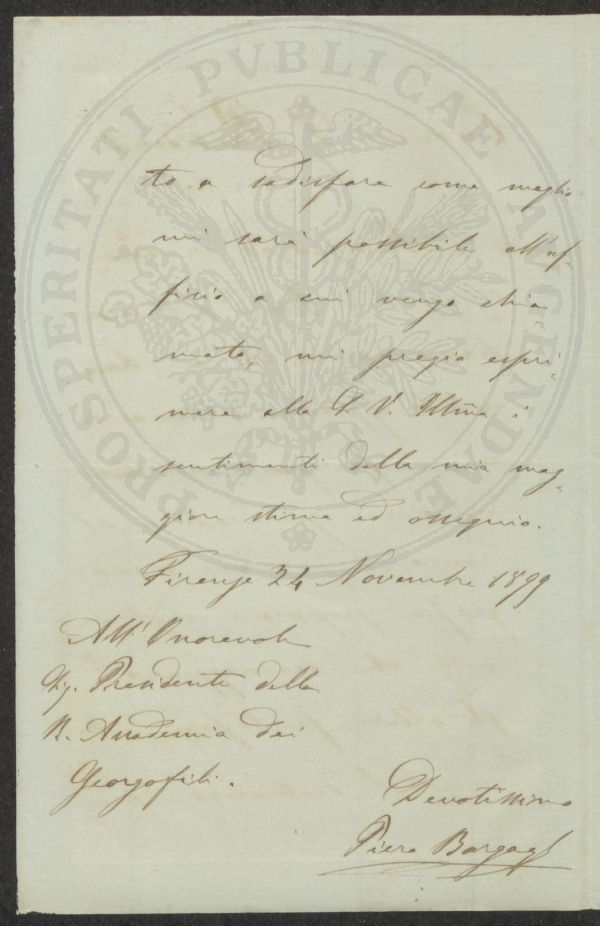 PROSPERITATI PVBLICAE AVGENDAE
to a sadisfare come meglio
mi sarà possibile all'uf-
ficio a cui vengo chia-
mato, mi pregio espri-
mere alla S. V. Illma i
sentimenti della mia mag-
giore stima ed ossequio.
Firenze 24 Novembre 1899
All' Onorevole
Sig. Presidente della
R. Accademia dei
Georgofili.
Devotissimo
Piero Bargagli